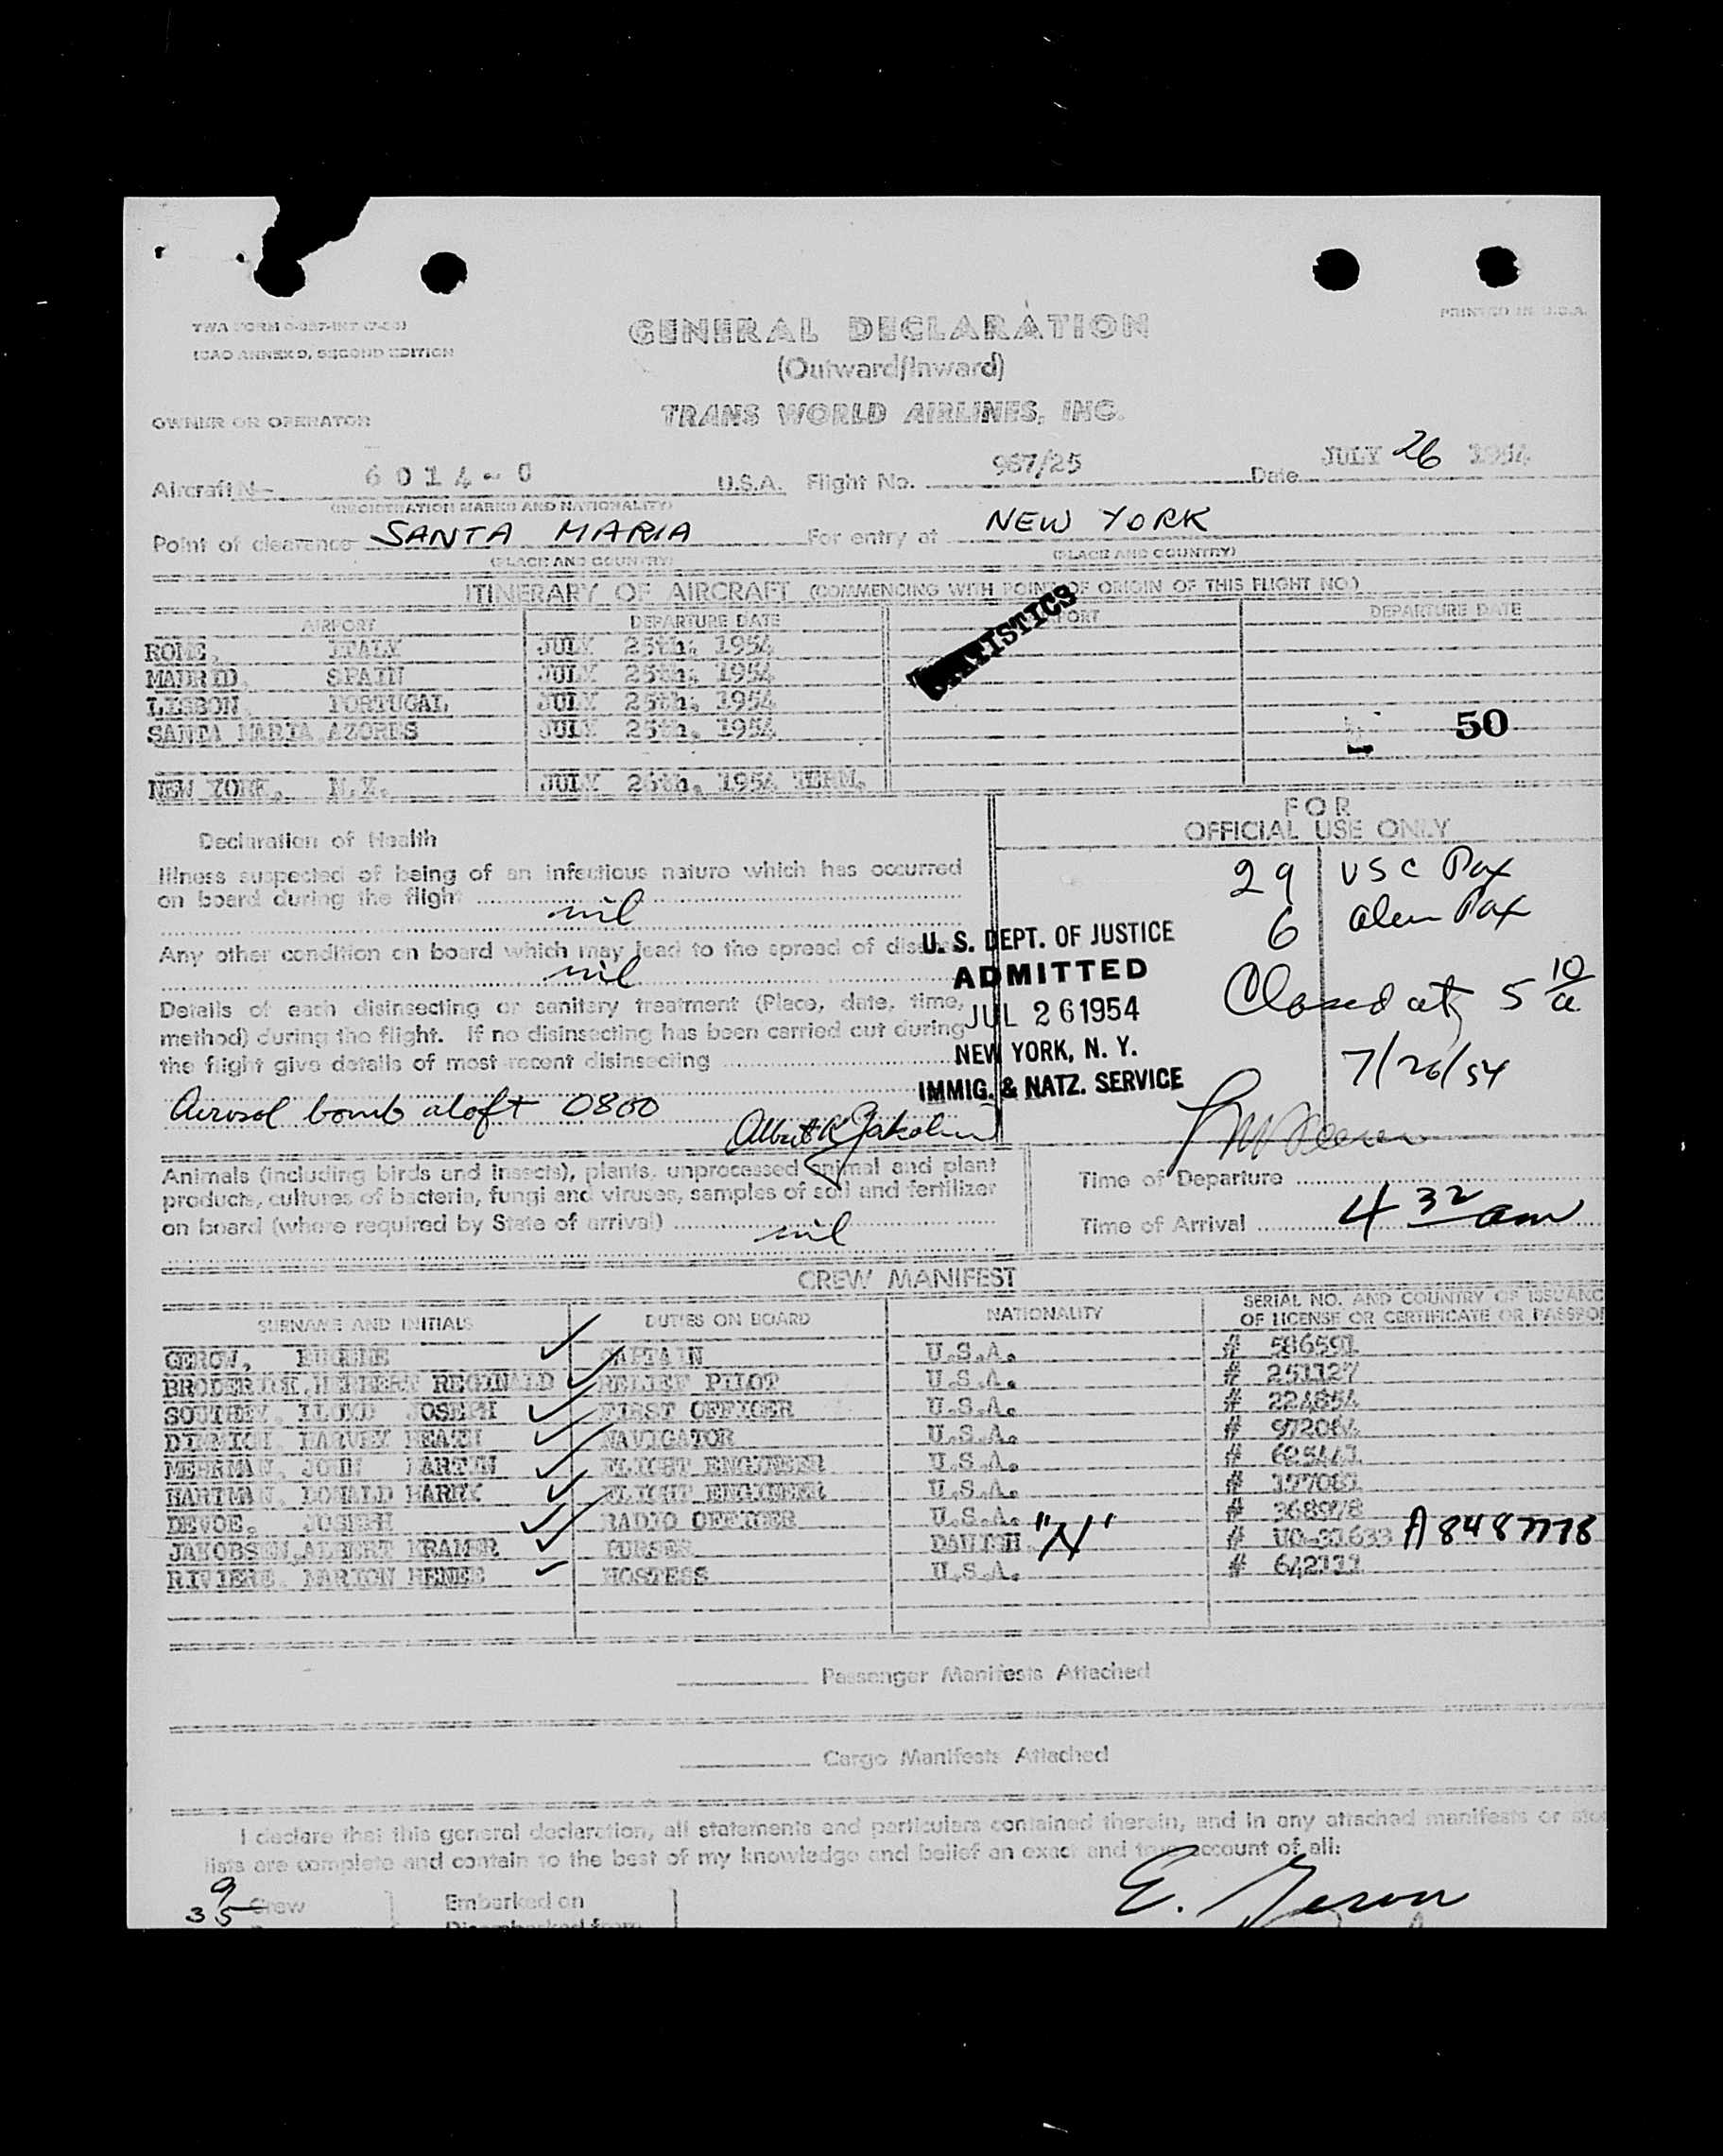 TWA FORM
PRINTED IN U.S.A.
ICAO ANNEX 9, SECOND EDITION
GENERAL DECLARATION
(Outward/Inward)
OWNER OR OPERATOR
TRANS WORLD AIRLINES, INC.
Aircraft N- 6014-C U.S.A. Flight No. 967/25 Date JULY 26 1954
(REGISTRATION MARKS AND NATIONALITY)
Point of clearance SANTA MARIA For entry at NEW YORK
(PLACE AND COUNTRY) (PLACE AND COUNTRY)
ITINERARY OF AIRCRAFT (COMMENCING WITH POINT OF ORIGIN OF THIS FLIGHT NO.)
AIRPORT DEPARTURE DATE DEPARTURE DATE
STATISTICS
ROME, ITALY JULY 25th, 1954
MADRID SPAIN JULY 25th, 1954
LISBON PORTUGAL JULY 25th, 1954
SANTA MARIA AZORES JULY 25th, 1954
50
NEW YORK, N.Y. JULY 26th, 1954 TERM.
FOR
OFFICIAL USE ONLY
Declaration of Health
Illness suspected of being of an infectious nature which has occurred
on board during the flight
nil
29 USC Pax
6 alien Pax
Any other condition on board which may lead to the spread of disease
nil
U. S. DEPT. OF JUSTICE
ADMITTED
JUL 26 1954
NEW YORK, N. Y.
IMMIG. & NATZ. SERVICE
Closed at 5 10/a
7/26/54
Details of each disinsecting or sanitary treatment (Place, date, time,
method) during the flight. If no disinsecting has been carried out during
the flight give details of most recent disinsecting
Aerosol bomb aloft 0800
Animals (including birds and insects), plants, unprocessed animal and plant
products, cultures of bacteria, fungi and viruses, samples of soil and fertilizer
on board (where required by State of arrival)
nil
Time of Departure
Time of Arrival 4 32 am
CREW MANIFEST
SURNAME AND INITIALS DUTIES ON BOARD NATIONALITY SERIAL NO. AND COUNTRY OF ISSUANC
OF LICENSE OR CERTIFICATE OR PASSPOR
GEROW, EUGENE CAPTAIN U.S.A. # 586591
BRODERICK, HERBERT REGINALD RELIEF PILOT U.S.A. # 251127
LLOYD JOSEPH FIRST OFFICER U.S.A. # 224854
HARVEY HEATH NAVIGATOR U.S.A. #
JOHN MARTIN FLIGHT ENGINEER U.S.A. #
HARTMAN, DONALD HARRY FLIGHT ENGINEER U.S.A. #
DEVOE, JOSEPH RADIO OFFICER U.S.A. # 368978
JAKOBSEN, ALBERT KRAMER PURSER DANISH "N" # A 8487778
RIVIERE, MARION RENEE HOSTESS U.S.A. #
Passenger Manifests Attached
Cargo Manifests Attached
I declare that this general declaration, all statements and particulars contained therein, and in any attached manifests or
lists are complete and contain to the best of my knowledge and belief an exact and true account of all:
9 Crew Embarked on
35 Disembarked from
E. Gerow